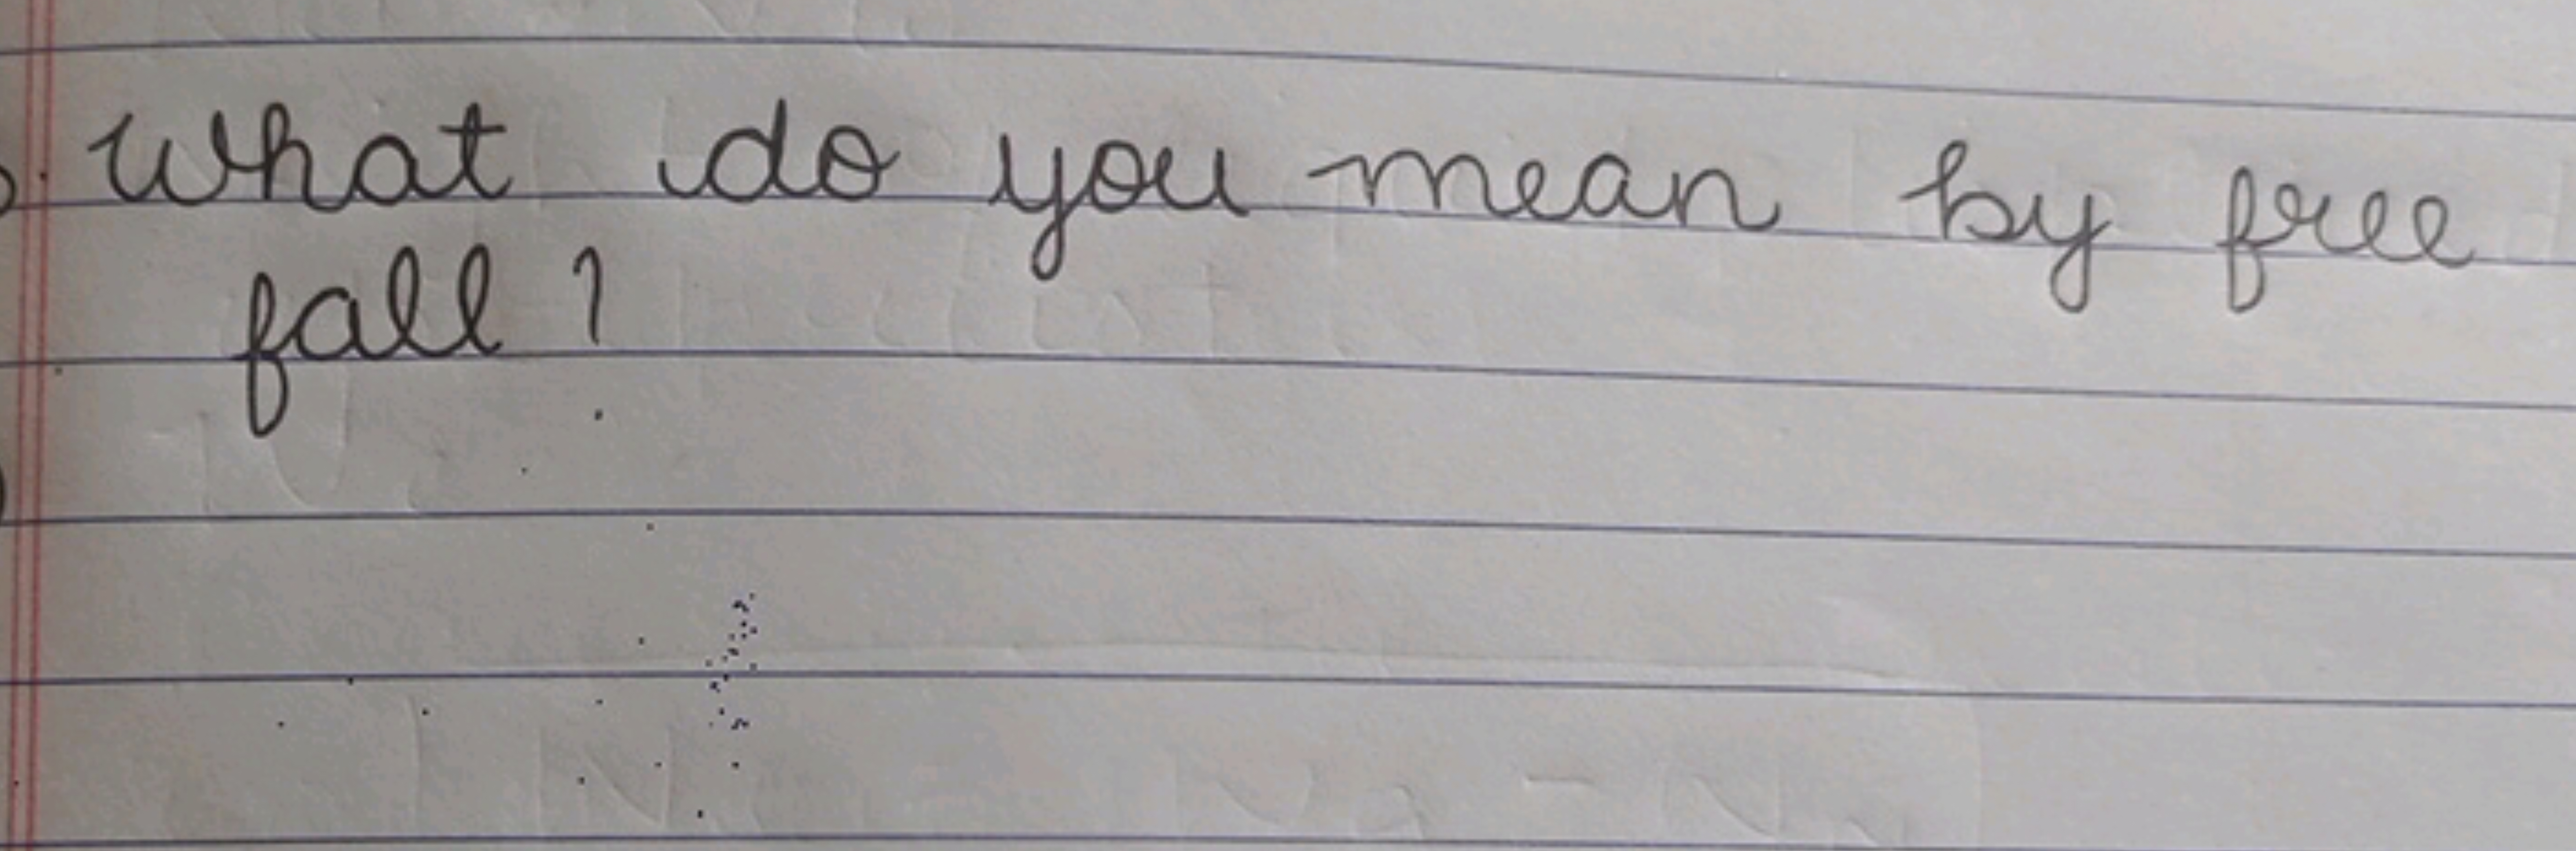 What do you mean by free
fall ?